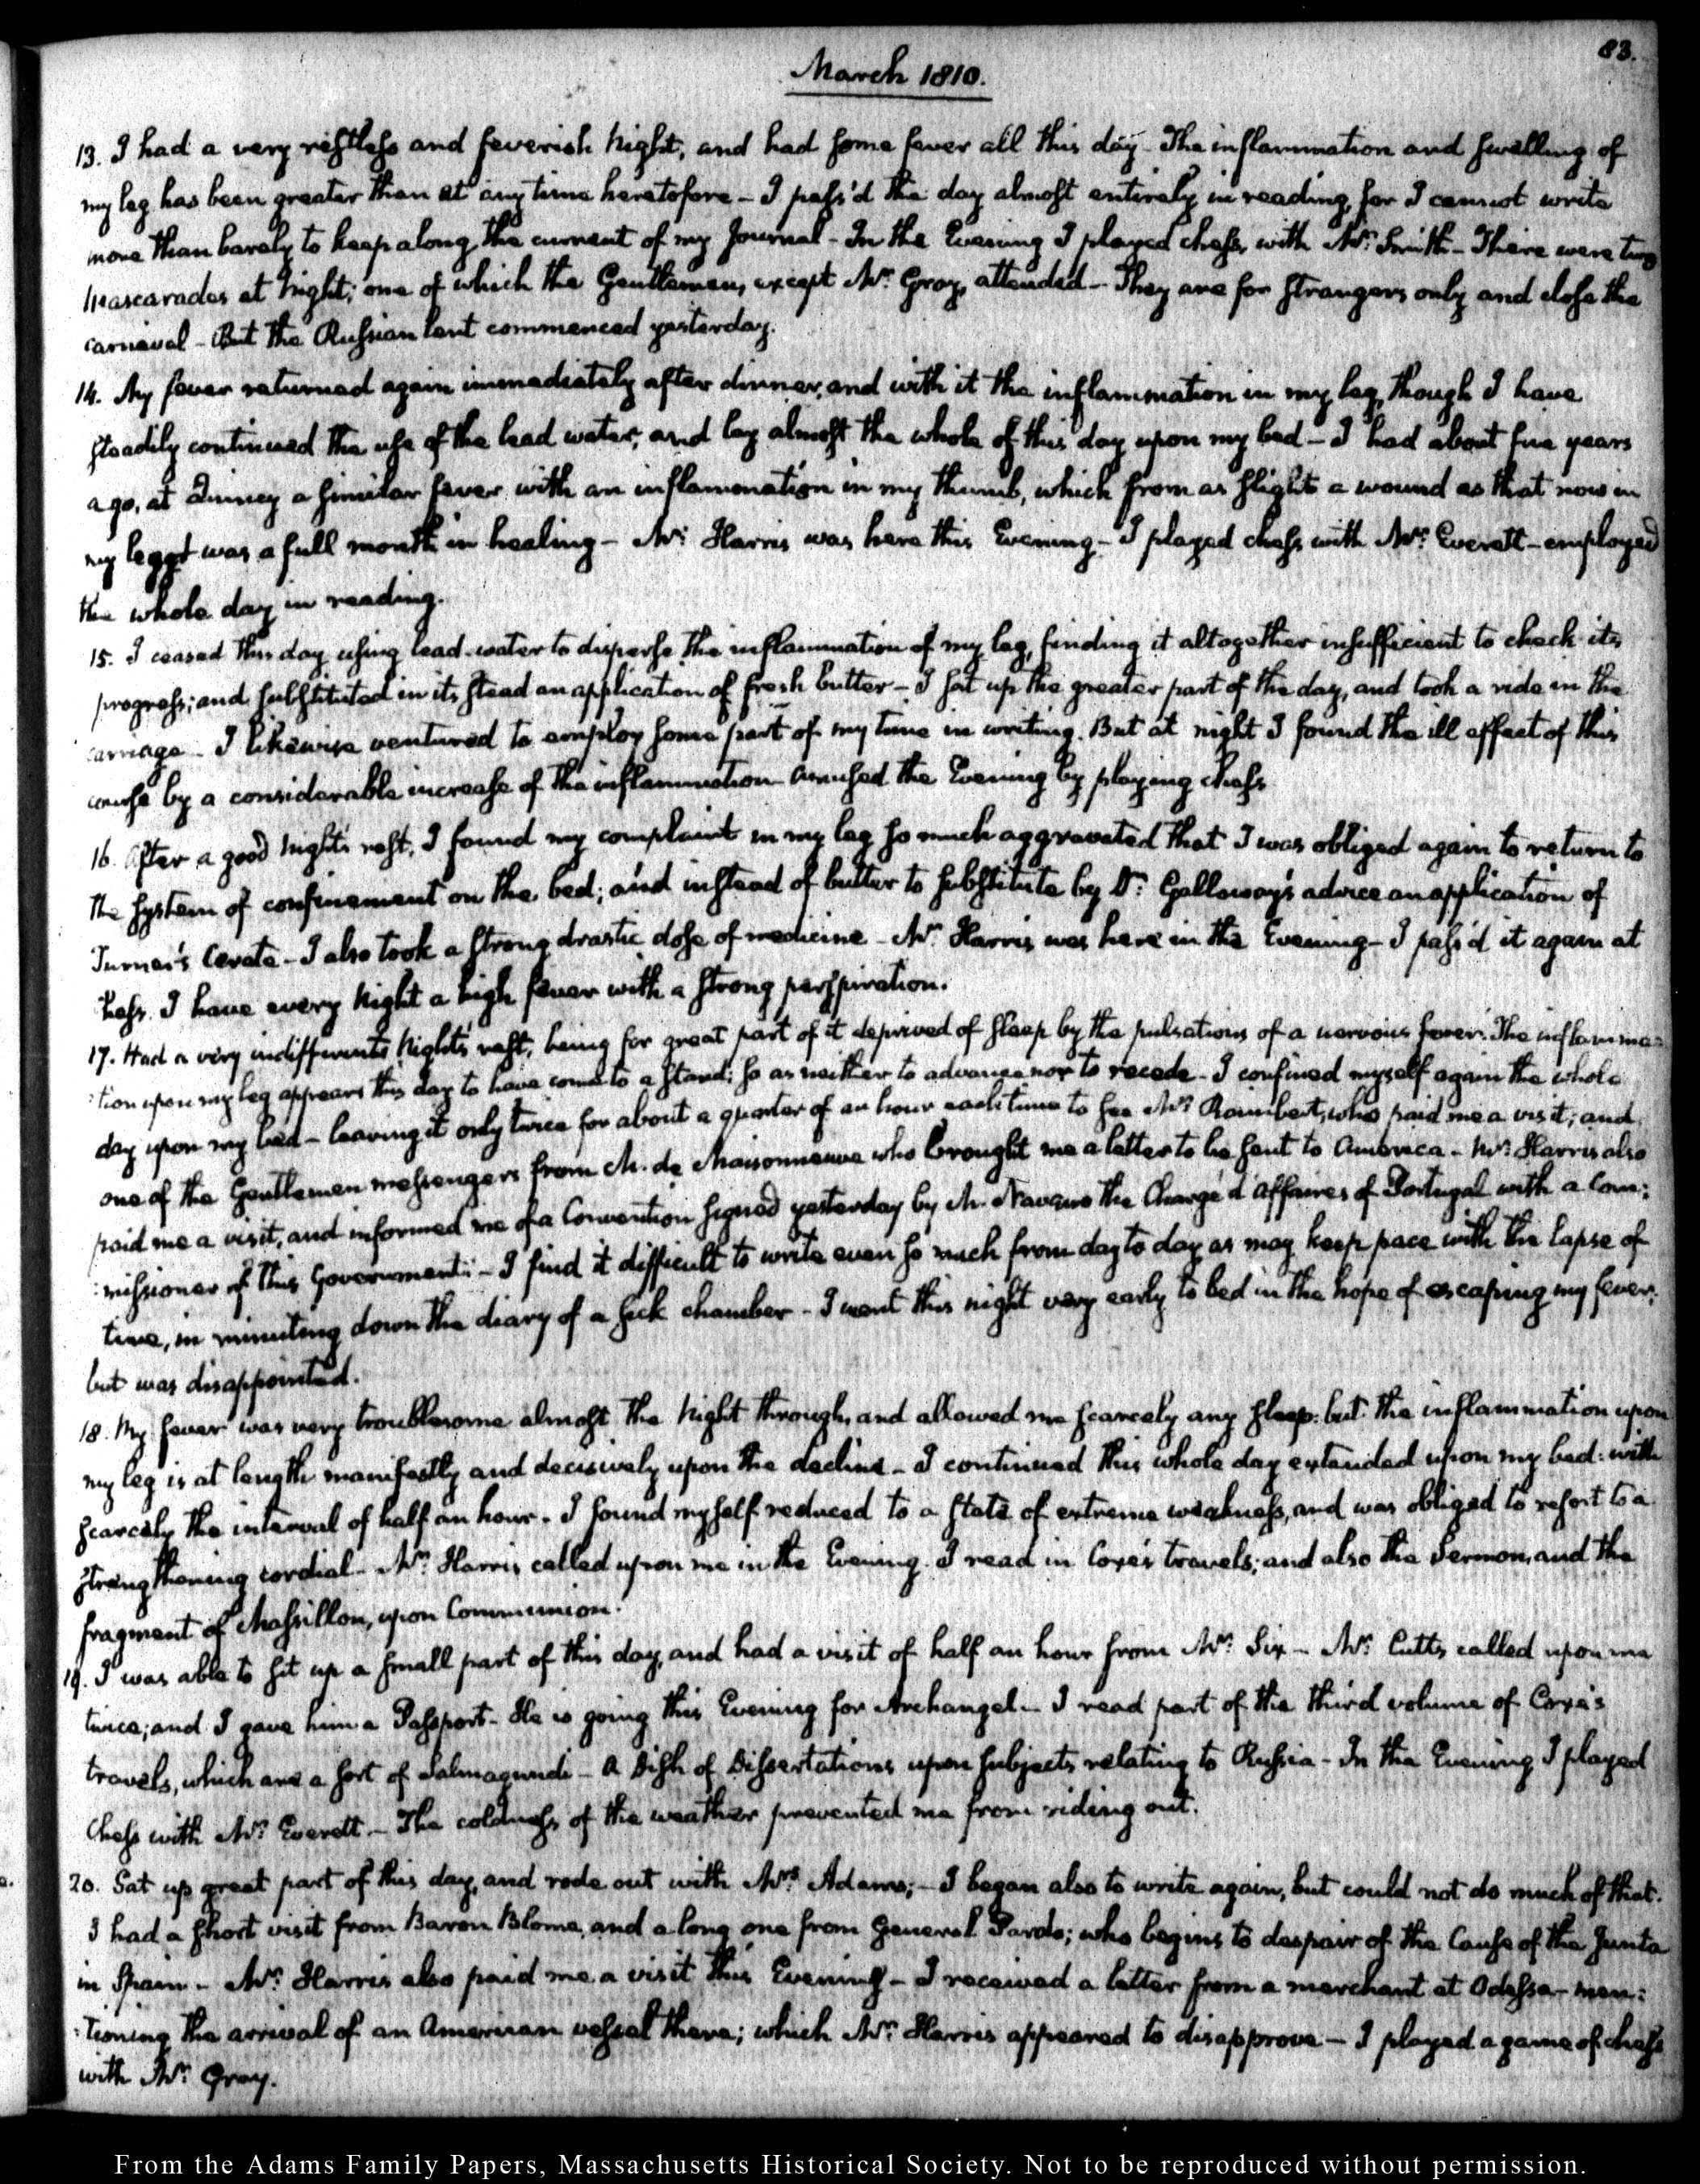 83.
March 1810.
13. I had a very restless and feverish Night, and had some fever all this day - The inflammation and swelling of
my leg has been greater than at any time heretofore - I pass'd the day almost entirely in reading, for I cannot write
more than barely to keep along the current of my Journal - In the Evening I played chess, with Mr. Smith - There were two
Mascarades at Night; one of which the Gentlemen, except Mr. Gray, attended - They are for strangers only and close the
carnaval - But the Russian lent commenced yesterday.
14. My fever returned again immediately after dinner, and with it the inflammation in my leg, though I have
steadily continued the use of the lead water, and lay almost the whole of this day upon my bed - I had about five years
ago, at Quincy a similar fever with an inflammation in my thumb, which from as slight a wound as that now in
my legg was a full month in healing - Mr. Harris was here this Evening - I played chess with Mr. Everett - employed
the whole day in reading.
15. I ceased this day using lead-water to disperse the inflammation of my leg, finding it altogether insufficient to check its
progress; and substituted in its stead an application of fresh butter - I sat up the greater part of the day, and took a ride in the
carriage - I likewise ventured to employ some part of my time in writing. But at night I found the ill effect of this
course by a considerable increase of the inflammation - Amused the Evening by playing chess
16. After a good Nights rest, I found my complaint in my leg so much aggravated that I was obliged again to return to
the system of confinement on the bed; and instead of butter to substitute by Dr. Galloway's advice an application of
Turner's Cerate - I also took a strong drastic dose of medicine - Mr. Harris was here in the Evening - I pass'd it again at
chess. I have every Night a high fever with a strong perspiration.
17. Had a very indifferent Night's rest, being for great part of it deprived of sleep by the pulsations of a nervous fever. The inflamma-
:tion upon my leg appears this day to have come to a stand; so as neither to advance nor to recede - I confined myself again the whole
day upon my bed - leaving it only twice for about a quarter of an hour each time to see Mr. Raimbert, who paid me a visit; and
one of the Gentlemen messengers from M. de Maisonneuve who brought me a letter to be sent to America - Mr. Harris also
paid me a visit, and informed me of a Convention signed yesterday by M. Navarro the Chargé d'Affaires of Portugal with a Com:
:missioner of this Government: - I find it difficult to write even so much from day to day as may keep pace with the lapse of
time, in minuting down the diary of a sick chamber - I went this night very early to bed in the hope of escaping my fever;
but was disappointed.
18. My fever was very troublesome almost the Night through, and allowed me scarcely any sleep: but the inflammation upon
my leg is at length manifestly and decisively upon the decline - I continued this whole day extended upon my bed: with
scarcely the interval of half an hour - I found myself reduced to a state of extreme weakness, and was obliged to resort to a
strengthening cordial - Mr. Harris called upon me in the Evening. I read in Coxe's travels; and also the Sermon, and the
fragment of Massillon, upon Communion.
19. I was able to sit up a small part of this day, and had a visit of half an hour from Mr. Six - Mr. Cutts called upon me
twice; and I gave him a Passport - He is going this Evening for Archangel - I read part of the third volume of Coxe's
travels, which are a sort of Salmagundi - A Dish of Dissertations upon subjects relating to Russia - In the Evening I played
Chess with Mr. Everett - The coldness of the weather prevented me from riding out.
20. Sat up great part of this day, and rode out with Mrs. Adams; - I began also to write again, but could not do much of that.
I had a short visit from Baron Blome, and a long one from General Pardo; who begins to despair of the Cause of the Junta
in Spain - Mr. Harris also paid me a visit this Evening - I received a letter from a merchant at Odessa - men:
:tioning the arrival of an American vessel there; which Mr. Harris appeared to disapprove - I played a game of chess
with Mr. Gray.
From the Adams Family Papers, Massachusetts Historical Society. Not to be reproduced without permission.